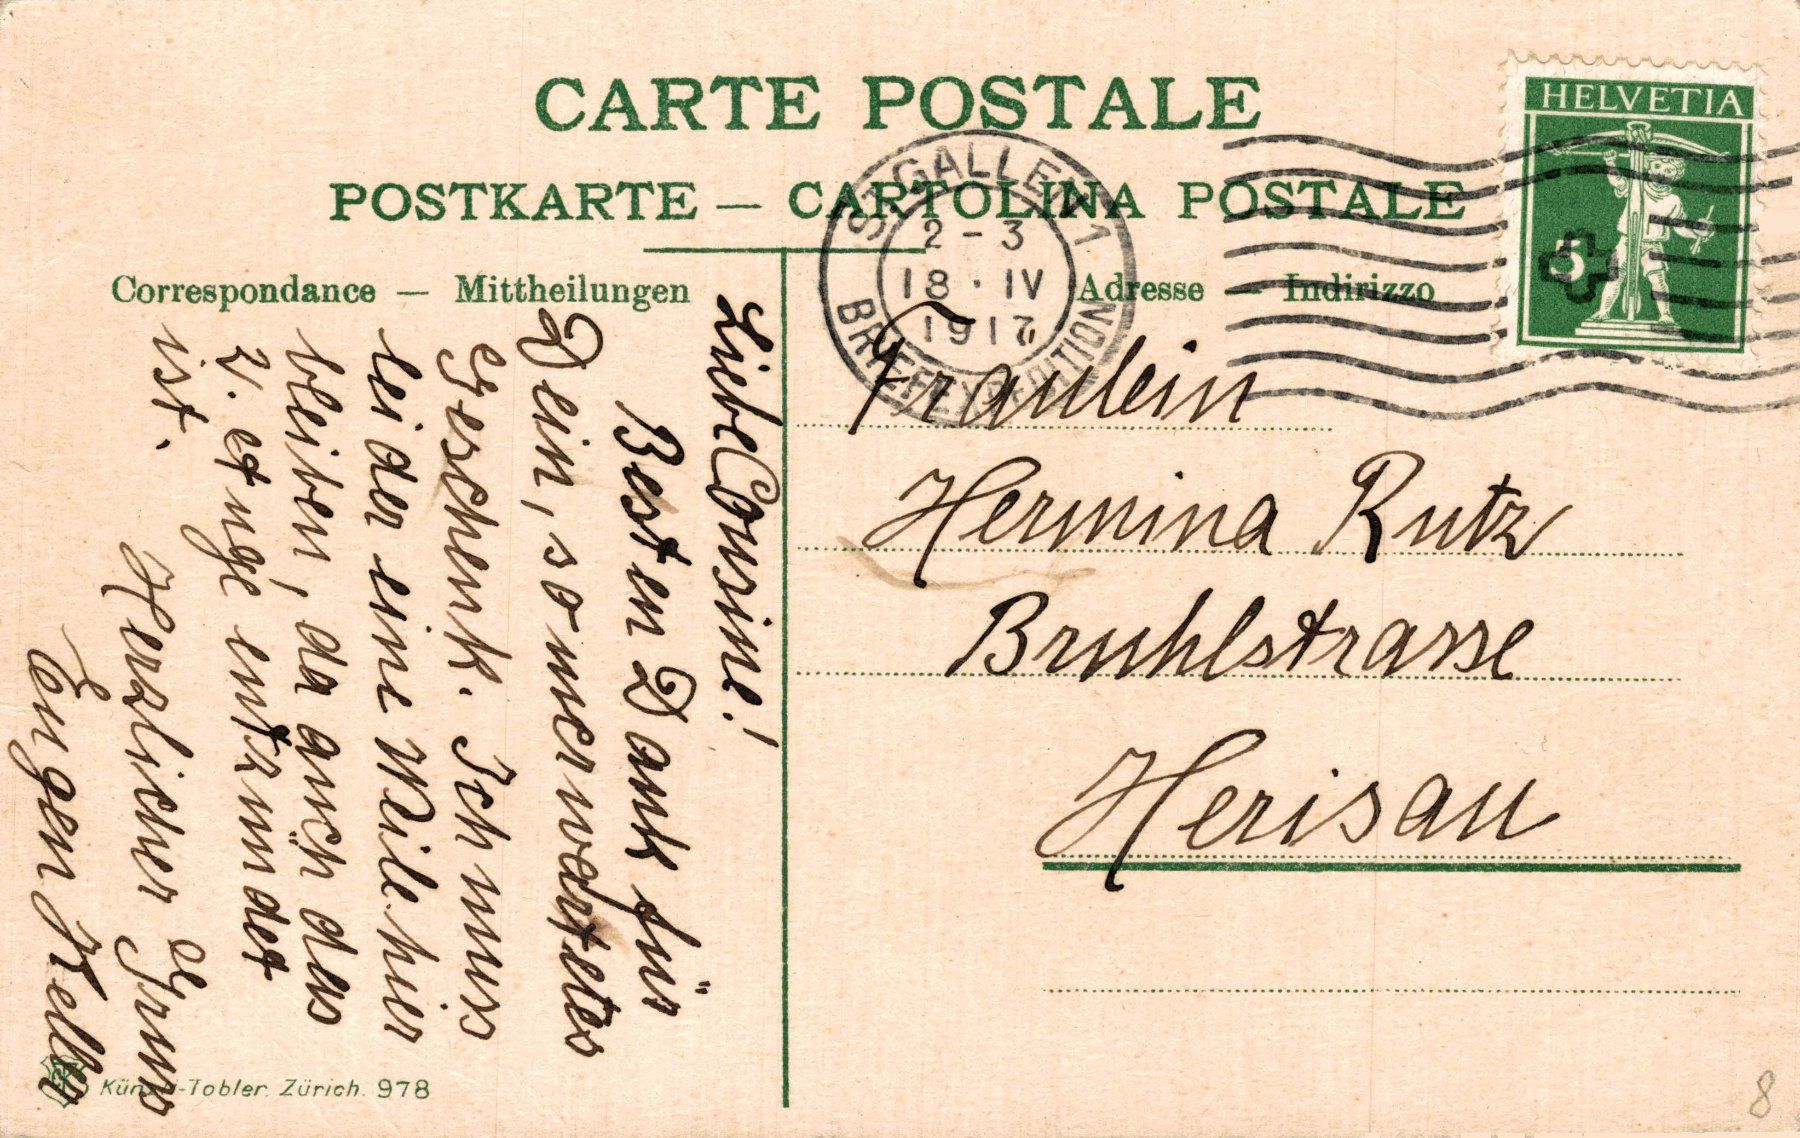 CARTE POSTALE
POSTKARTE — CARTOLINA POSTALE
Correspondance — Mittheilungen
Adresse — Indirizzo
HELVETIA
5
ST. GALLEN 1
2-3
18·IV
1917
BRIEFEXPEDITION
Liebe Cousine!
Besten Dank für
Dein, so unerwartetes
Geschenk. Ich muss
leider eine Weile hier
bleiben, da auch das
ist.
Herzlicher Gruss
Eugen Keller
Fraulein
Hermina Rutz
Bruhlstrasse
Herisau
Künzli-Tobler. Zürich. 978
8